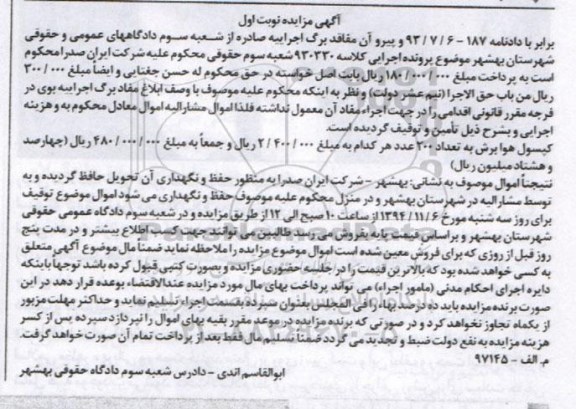 آگهی مزایده نوبت اول
برابر با دادنامه ۱۸۷ - ۶ / ۷ / ۹۳ و پیرو آن مفاقد برگ اجراییه صادره از شعبه سوم دادگاههای عمومی و حقوقی
شهرستان بهشهر موضوع پرونده اجرایی کلاسه ۹۳۰۳۳۰ شعبه سوم حقوقی محکوم علیه شرکت ایران صدرا محکوم
است به پرداخت مبلغ ۱۸۰/۰۰۰/۰۰۰ ریال بابت اصل خواسته در حق محکوم له حسن جغتایی و ایضا مبلغ ۳۰۰/۰۰۰
ریال من باب حق الاجرا (نیم عشر دولت) و نظر به اینکه محکوم علیه موصوف با وصف ابلاغ مفاد برگ اجراییه بوی در
فرجه مقرر قانونی اقدامی را در جهت اجراء مفاد آن معمول نداشته فلذا اموال مشارالیه اموال معادل محکوم به و هزینه
اجرایی و بشرح ذیل تأمین و توقیف گردیده است.
کپسول هوا برش به تعداد ۲۰۰ عدد هر کدام به مبلغ ۲/۴۰۰/۰۰۰ ریال و جمعاً به مبلغ ۴۸۰/۰۰۰/۰۰۰ ریال (چهارصد
و هشتاد میلیون ریال)
نتیجتاً اموال موصوف به نشانی: بهشهر - شرکت ایران صدرا به منظور حفظ و نگهداری آن تحویل حافظ گردیده و به
توسط مشارالیه در شهرستان بهشهر و در منزل محکوم علیه موصوف حفظ و نگهداری می شود اموال موضوع توقیف
برای روز سه شنبه مورخ ۶ / ۱۱ / ۱۳۹۴ از ساعت ۱۰ صبح الی ۱۲ از طریق مزایده و در شعبه سوم دادگاه عمومی حقوقی
شهرستان بهشهر و بر اساس قیمت پایه بفروش می رسد طالبین می توانند جهت کسب اطلاع بیشتر و در مدت پنج
روز قبل از روزی که برای فروش معین شده است اموال موضوع مزایده را ملاحظه نماید ضمناً مال موضوع آگهی متعلق
به کسی خواهد شده بود که بالاترین قیمت را در جلسه حضوری مزایده و بصورت کتبی قبول کرده باشد توجهاً باینکه
دایره اجرای احکام مدنی (مامور اجراء) می تواند پرداخت بهای مال مورد مزایده عندالاقتضاء بوعده قرار دهد در این
صورت برنده مزایده باید ده درصد بهاء رافی المجلس بعنوان سپرده بقسمت اجراء تسلیم نماید و حداکثر مهلت مزبور
از یکماه تجاوز نخواهد کرد و در صورتی که برنده مزایده در موعد مقرر بقیه بهای اموال را نپردازد سپرده پس از کسر
هزینه مزایده به نفع دولت ضبط و تجدید می گردد ضمناً تسلیم مال فقط بعد از پرداخت تمام آن صورت خواهد گرفت.
م. الف - ۹۷۱۴۵
ابوالقاسم اندی - دادرس شعبه سوم دادگاه حقوقی بهشهر